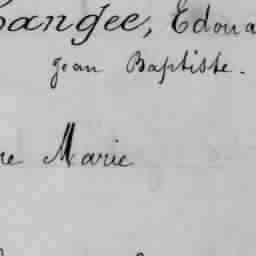 angee, Edoua
Jean Baptiste.
re Marie